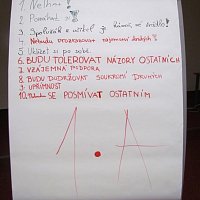 1. Nelhat!
2. Pomáhat si
3. Spolužák a učitel je kámoš, ne zrádlo!
4. Nebudu prozrazovat tajemství druhých!
5. Uklízet si po sobě.
6. BUDU TOLEROVAT NÁZORY OSTATNÍCH
7. VZÁJEMNÁ PODPORA
8. BUDU DODRŽOVAT SOUKROMÍ DRUHÝCH
9. UPŘÍMNOST
10. SE POSMÍVAT OSTATNÍM
1.A